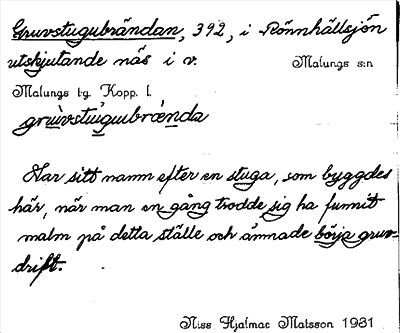 Gruvstugubrändan, 392, i Rönnhällsjön
utskjutande näs i v. Malungs s:n
Malungs tg. Kopp. l.
gruvstugubrænda
Har sitt namn efter en stuga, som byggdes
här, när man en gång trodde sig ha funnit
malm på detta ställe och ämnade börja gruv-
drift.
Niss Hjalmar Matsson 1931